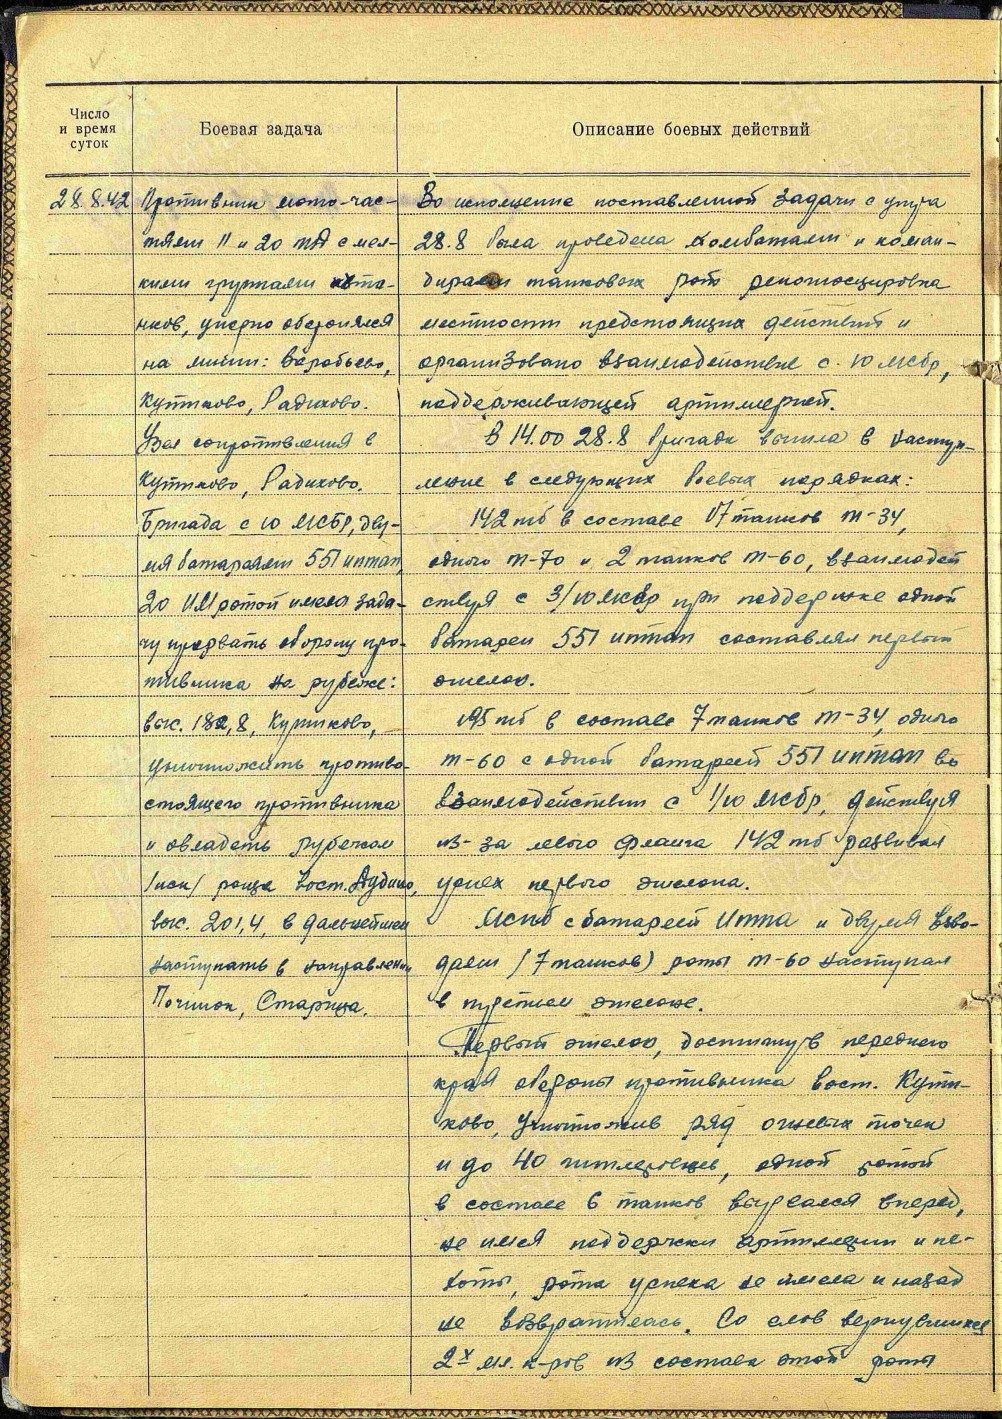 Число
и время
суток
Боевая задача
Описание боевых действий
28.8.42
Противник мото-час-
тями 11 и 20 тд с мел-
кими группами та-
нков, упорно оборонялся
на линии: Воробьево,
Кутиково, Радихово.
Узел сопротивления в
Кутиково, Радихово.
Бригада с 10 МСБР, дву-
мя батареями 551 иптап,
20 ИМ ротой имела зада-
чу прорвать оборону про-
тивника на рубеже:
выс. 182,8, Кутиково,
уничтожить противо-
стоящего противника
и овладеть рубежом
/иск/ роща вост.
выс. 201,4, в дальнейшем
наступать в направлении
Починок, Старица.
Во исполнение поставленной задачи с утра
28.8 была проведена комбатами и коман-
дирами танковых рот рекогносцировка
местности предстоящих действий и
организовано взаимодействие с 10 мсбр,
поддерживающей артиллерией.
В 14.00 28.8 бригада вышла в наступ-
ление в следующих боевых порядках:
142 тб в составе 17 танков т-34,
одного т-70 и 2 танков т-60, взаимодей
ствуя с 3/10 мсбр при поддержке одной
батареи 551 иптап составлял первый
эшелон.
195 тб в составе 7 танков т-34, одного
т-60 с одной батареей 551 иптап во
взаимодействии с 1/10 мсбр, действуя
из-за левого фланга 142 тб развивал
успех первого эшелона.
Мспб с батареей ипта и двумя взво-
дами (7 танков) роты т-60 наступал
в третьем эшелоне.
Первый эшелон, достигнув переднего
края обороны противника вост. Кути-
ково, уничтожив ряд огневых точек
и до 40 гитлеровцев, одной ротой
в составе 6 танков вырвался вперед,
не имея поддержки артиллерии и пе-
хоты, рота успеха не имела и назад
не возвратилась. Со слов вернувшихся
2х мл. к-ров из состава этой роты